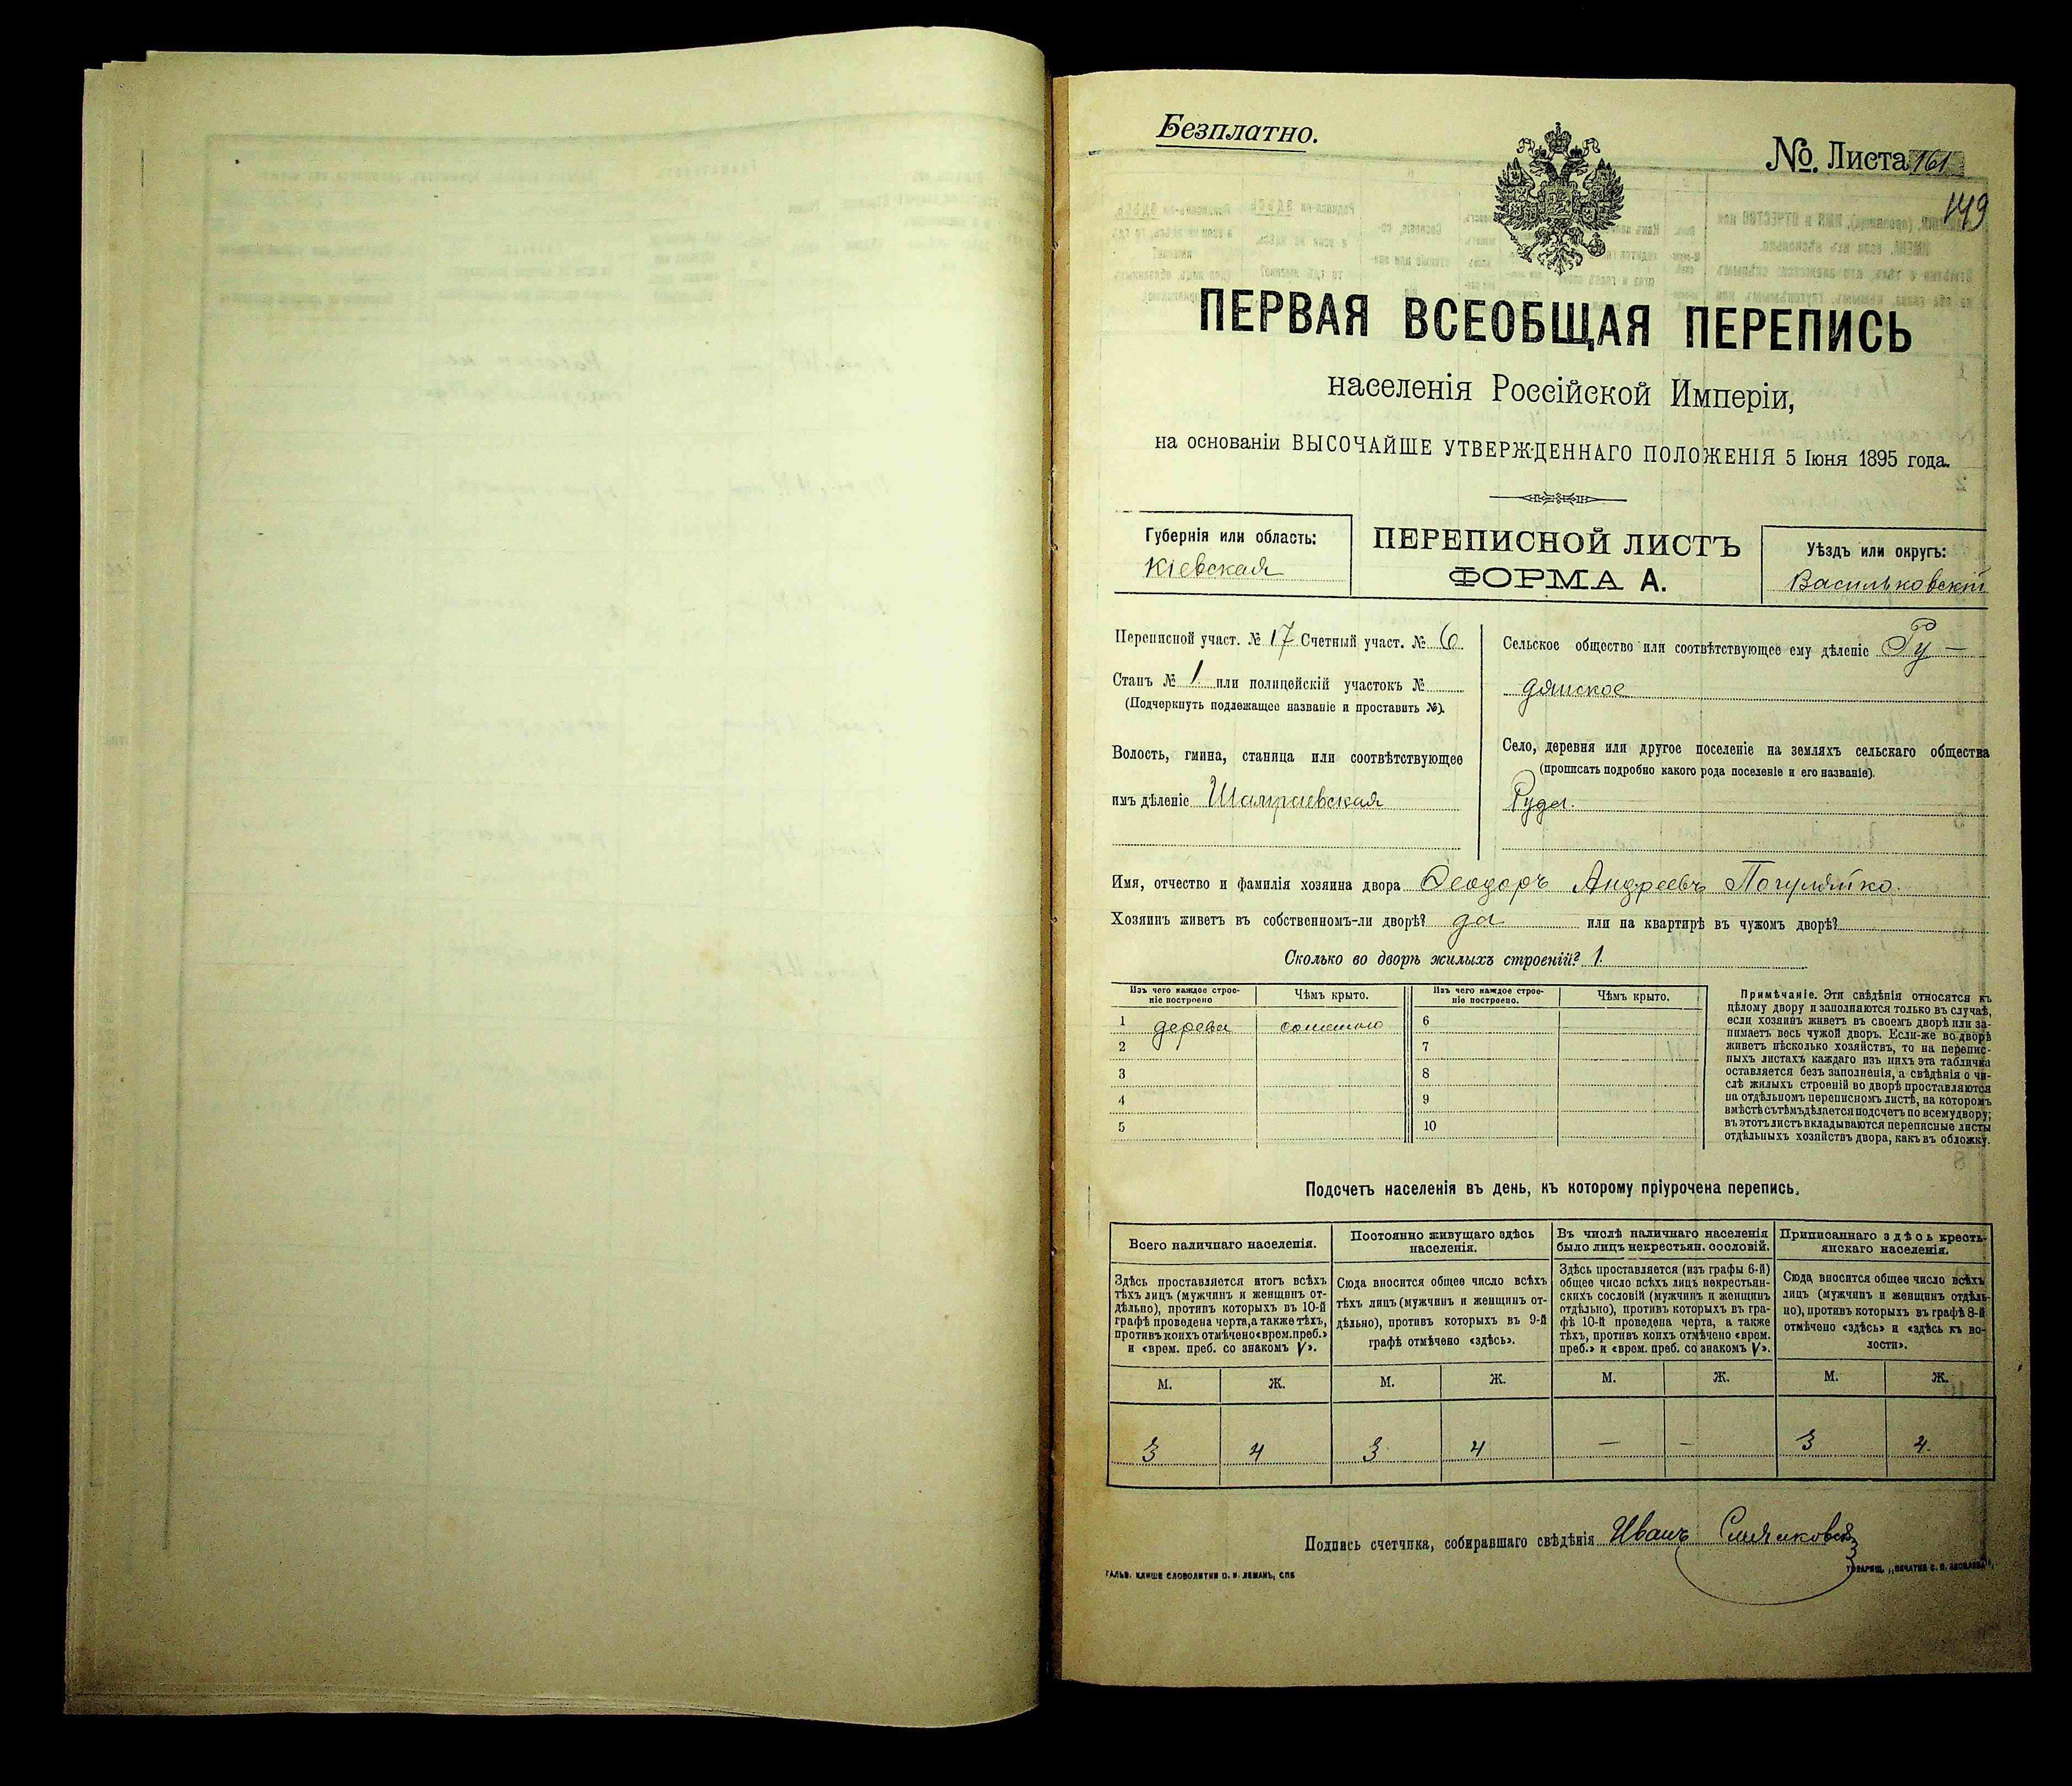 Безплатно.
№ Листа 161
149
ПЕРВАЯ ВСЕОБЩАЯ ПЕРЕПИСЬ
населенія Россійской Имперіи,
на основаніи ВЫСОЧАЙШЕ УТВЕРЖДЕННАГО ПОЛОЖЕНІЯ 5 Іюня 1895 года.
Губернія или область:
Кіевская
ПЕРЕПИСНОЙ ЛИСТЪ
ФОРМА А.
Уѣздъ или округъ:
Васильковскій
Переписной участ. № 17 Счетный участ. № 6
Станъ № 1 или полицейскій участокъ №
(Подчеркнуть подлежащее названіе и проставить №).
Волость, гмина, станица или соотвѣтствующее
имъ дѣленіе Шамраевская
Сельское общество или соотвѣтствующее ему дѣленіе Ру-
дянское
Село, деревня или другое поселеніе на земляхъ сельскаго общества
(прописать подробно какого рода поселеніе и его названіе).
Руда.
Имя, отчество и фамилія хозяина двора Ѳеодоръ Андреевъ Погуляйко.
Хозяинъ живетъ въ собственномъ-ли дворѣ? да или на квартирѣ въ чужомъ дворѣ?
Сколько во дворѣ жилыхъ строеній? 1.
Изъ чего каждое строе-
ніе построено
Чѣмъ крыто.
Изъ чего каждое строе-
ніе построено.
Чѣмъ крыто.
1 дерева соломою 6
2 7
3 8
4 9
5 10
Примѣчаніе. Эти свѣдѣнія относятся къ
цѣлому двору и заполняются только въ случаѣ,
если хозяинъ живетъ въ своемъ дворѣ или за-
нимаетъ весь чужой дворъ. Если-же во дворѣ
живетъ нѣсколько хозяйствъ, то на перепис-
ныхъ листахъ каждаго изъ нихъ эта табличка
оставляется безъ заполненія, а свѣдѣнія о чи-
слѣ жилыхъ строеній во дворѣ проставляются
на отдѣльномъ переписномъ листѣ, на которомъ
вмѣстѣ съ тѣмъ дѣлается подсчетъ по всему двору;
въ этотъ листъ вкладываются переписные листы
отдѣльныхъ хозяйствъ двора, какъ въ обложку.
Подсчетъ населенія въ день, къ которому пріурочена перепись.
Всего наличнаго населенія.
Здѣсь проставляется итогъ всѣхъ
тѣхъ лицъ (мужчинъ и женщинъ от-
дѣльно), противъ которыхъ въ 10-й
графѣ проведена черта, а также тѣхъ,
противъ коихъ отмѣчено «врем. преб.»
и «врем. преб. со знакомъ V».
Постоянно живущаго здѣсь
населенія.
Сюда вносится общее число всѣхъ
тѣхъ лицъ (мужчинъ и женщинъ от-
дѣльно), противъ которыхъ въ 9-й
графѣ отмѣчено «здѣсь».
Въ числѣ наличнаго населенія
было лицъ некрестьян. сословій.
Здѣсь проставляется (изъ графы 6-й)
общее число всѣхъ лицъ некрестьян-
скихъ сословій (мужчинъ и женщинъ
отдѣльно), противъ которыхъ въ гра-
фѣ 10-й проведена черта, а также
тѣхъ, противъ коихъ отмѣчено «врем.
преб.» и «врем. преб. со знакомъ V».
Приписаннаго здѣсь кресть-
янскаго населенія.
Сюда вносится общее число всѣхъ
лицъ (мужчинъ и женщинъ отдѣль-
но), противъ которыхъ въ графѣ 8-й
отмѣчено «здѣсь» и «здѣсь къ во-
лости».
М. Ж. М. Ж. М. Ж. М. Ж.
3 4 3 4 — — 3 4.
Подпись счетчика, собиравшаго свѣдѣнія Иванъ
ГАЛЬВ. КЛИШЕ СЛОВОЛИТНИ О. И. ЛЕМАНЪ, СПБ
ТОВАРИЩ. „ПЕЧАТНЯ С. П. ЯКОВЛЕВА“,